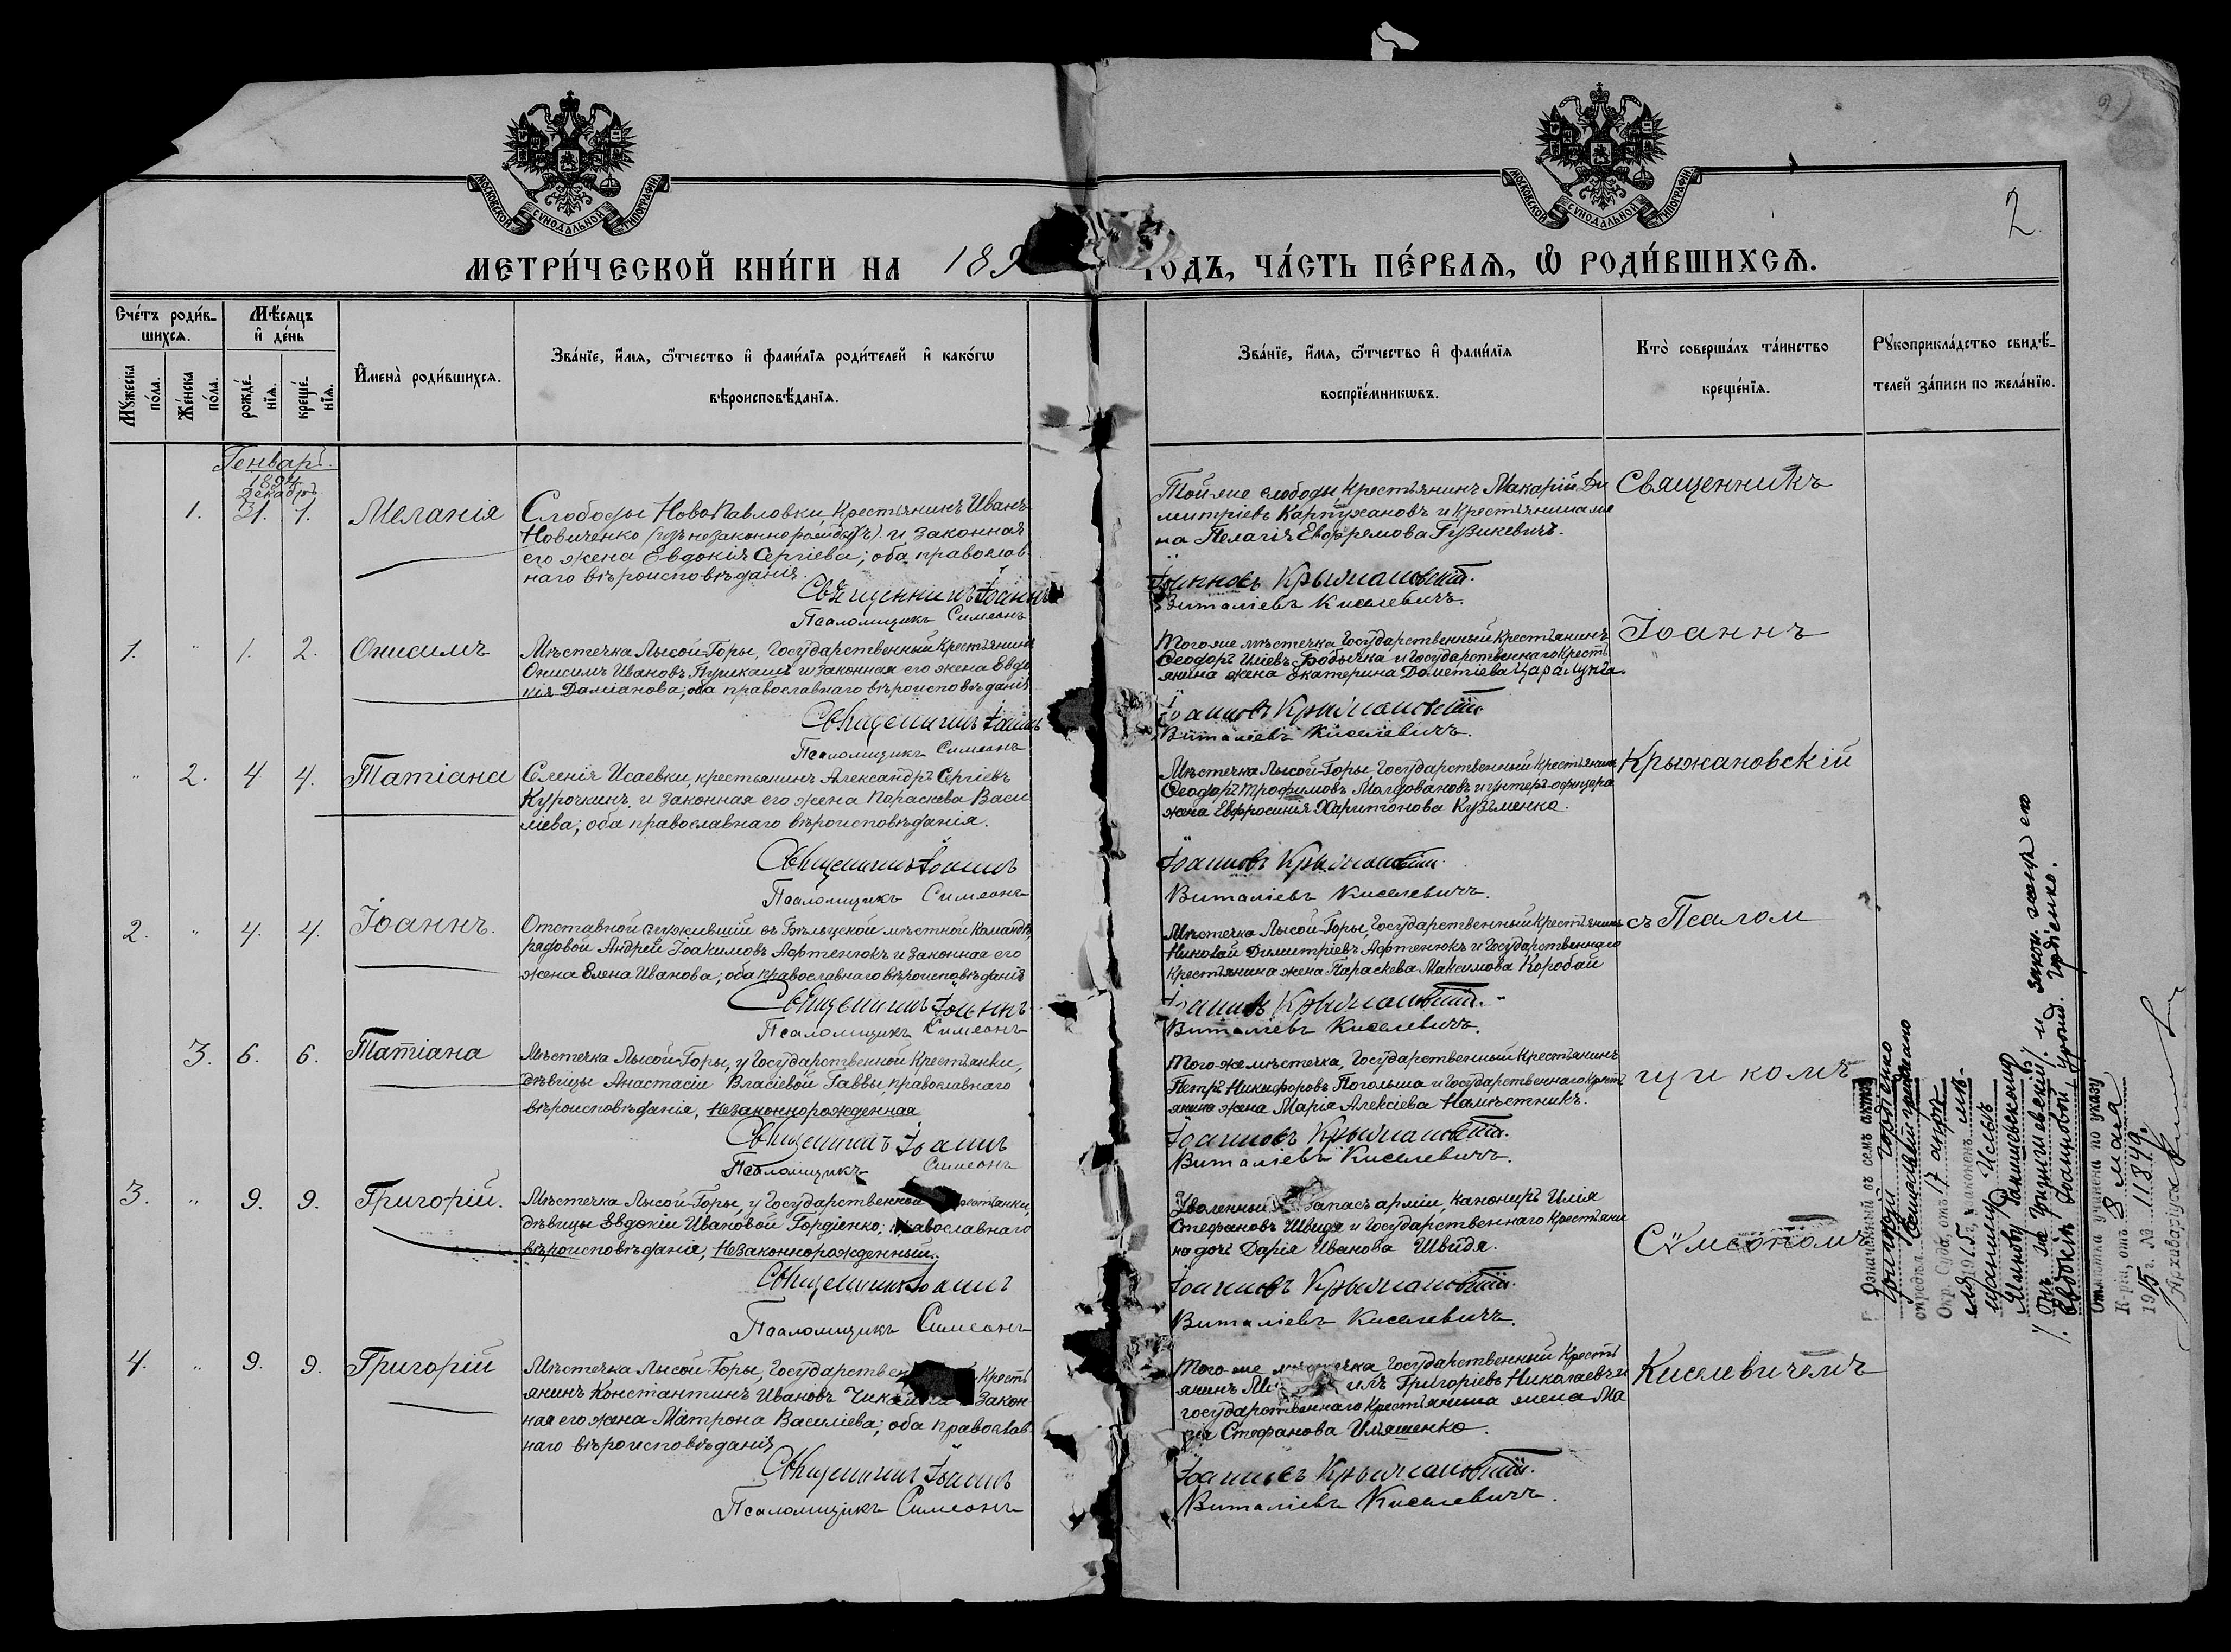 МОСКОВСКОЙ СѴНОДАЛЬНОЙ ТИПОГРАФІИ
МОСКОВСКОЙ СѴНОДАЛЬНОЙ ТИПОГРАФІИ
2.
МЕТРИ́ЧЕСКОЙ КНИ́ГИ НА 189
ГОДЪ, ЧА́СТЬ ПЕ́РВАЯ, Ѡ РОДИ́ВШИХСЯ.
Сче́тъ роди́в-
шихся.
Мꙋ́жеска по́ла.
Же́нска по́ла.
Мѣ́сяцъ
и҆ де́нь
рожде́-
нїя.
креще́-
нїя.
И҆мена̀ роди́вшихся.
Зва́нїе, и҆́мя, ѻ҆́тчество и҆ фами́лїя роди́телей и҆ како́гѡ
вѣроисповѣ́данїя.
Зва́нїе, и҆́мя, ѻ҆́тчество и҆ фами́лїя
воспрїе́мникѡвъ.
Кто̀ соверша́лъ та́инство
креще́нїя.
Рꙋкоприкла́дство свидѣ́-
телей за́писи по жела́нїю.
Генварь.
1894
Декабрь
1. 31. 1. Меланія
Слободы НовоПавловки, крестьянинъ Иванъ
Новиченко (изъ незаконнорожд.) и законная
его жена Евдокія Сергіева; оба православ-
наго вѣроисповѣданія.
Священникъ Іоаннъ
Псаломщикъ Симеонъ
Той же слободы, крестьянинъ Макарій Ди
митріевъ Карпухановъ и крестьянина же
на Пелагія Евфремова Гузикевичъ.
Іоанновъ Крыжановскій.
Виталіевъ Киселевичъ.
Священникъ
1. " 1. 2. Онисимъ
Мѣстечка Лысой-Горы, Государственный крестьянинъ
Онисимъ Ивановъ Пушкашъ и законная его жена Евдо
кія Даміанова; оба православнаго вѣроисповѣданія
Священникъ Іоаннъ
Псаломщикъ Симеонъ
Того же мѣстечка, Государственный крестьянинъ
Ѳеодоръ Иліевъ Бобычка и Государственнаго кресть
янина жена Екатерина Дометіева Царалунга.
Іоанновъ Крыжановскій.
Виталіевъ Киселевичъ.
Іоаннъ
" 2. 4 4. Татіана
Селенія Исаевки, крестьянинъ Александръ Сергіевъ
Курочкинъ и законная его жена Параскева Васи
ліева; оба православнаго вѣроисповѣданія.
Священникъ Іоаннъ
Псаломщикъ Симеонъ
Мѣстечка Лысой-Горы, Государственный крестьянинъ
Ѳеодоръ Трофимовъ Молдовановъ и унтеръ-офицера
жена Евфросинія Харитонова Кузьменко.
Іоанновъ Крыжановскій.
Виталіевъ Киселевичъ.
Крыжановскій
2. " 4. 4. Іоаннъ.
Отставной служившій въ Бѣльцской мѣстной командѣ,
рядовой Андрей Іоакимовъ Афтенюкъ и законная его
жена Елена Иванова; оба православнаго вѣроисповѣданія
Священникъ Іоаннъ
Псаломщикъ Симеонъ
Мѣстечка Лысой-Горы, Государственный крестьянинъ
Николай Димитріевъ Афтенюкъ и Государственнаго
крестьянина жена Параскева Максимова Коробай
Іоанновъ Крыжановскій.
Виталіевъ Киселевичъ.
съ Псалом
3. 6. 6. Татіана
Мѣстечка Лысой-Горы, у Государственной крестьянки,
дѣвицы Анастасіи Власіевой Гаввы, православнаго
вѣроисповѣданія, незаконнорожденная
Священникъ Іоаннъ
Псаломщикъ Симеонъ
Того-же мѣстечка, Государственный крестьянинъ
Петръ Никифоровъ Погольша и Государственнаго крест
янина жена Марія Алексіева Намѣстникъ.
Іоанновъ Крыжановскій.
Виталіевъ Киселевичъ.
щикомъ
3. " 9. 9. Григорій.
Мѣстечка Лысой-Горы, у Государственной крестьянки,
дѣвицы Евдокіи Ивановой Гордіенко, православнаго
вѣроисповѣданія, незаконнорожденный.
Священникъ Іоаннъ
Псаломщикъ Симеонъ
Уволенный запасъ арміи, канониръ Илія
Стефановъ Швидя и Государственнаго крестьяни
на дочь Дарія Иванова Швидя.
Іоанновъ Крыжановскій.
Виталіевъ Киселевичъ.
Сѵмеономъ
4. " 9. 9. Григорій
Мѣстечка Лысой-Горы, Государствен Кресть
янинъ Константинъ Ивановъ и Закон
ная его жена Матрона Василіева; оба православ-
наго вѣроисповѣданія
Священникъ Іоаннъ
Псаломщикъ Симеонъ
Того-же мѣстечка Государственный кресть
янинъ Григоріевъ Николаевъ и
государственнаго крестьянина жена Ма
рія Стефанова Ильяшенко.
Іоанновъ Крыжановскій.
Виталіевъ Киселевичъ.
Киселевичемъ
Означенный въ семъ актѣ
Григорій Гордіенко
опредѣл.
Окр. Суда, отъ 17 апр
1915 г. узаконенъ
Иванову
онъ же
Евдокіи Ивановой, урожд. Гордіенко.
закон. жены его
Отмѣтка учинена по указу
К-ріи, отъ 8 мая
1915 г. № 11849.
Архиваріусъ